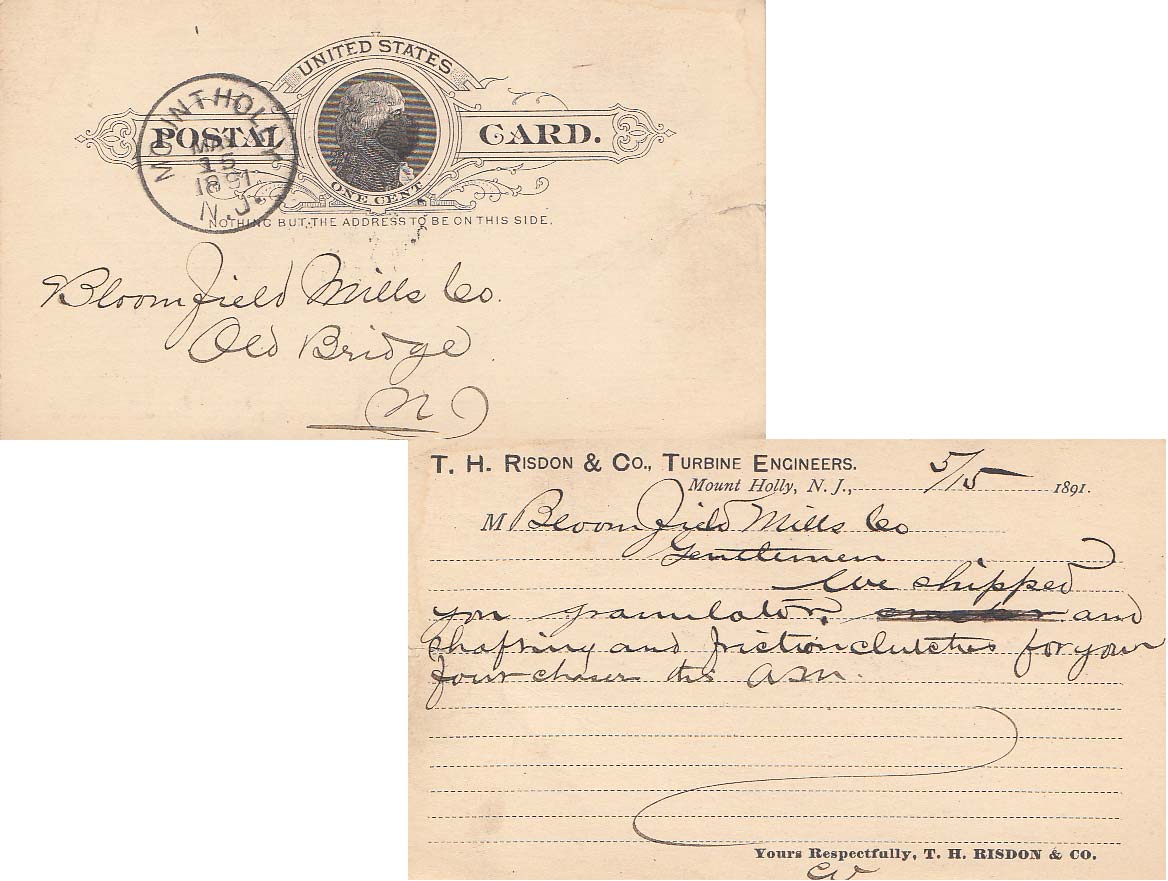 UNITED STATES
POSTAL CARD.
ONE CENT
MOUNT HOLLY
MAY
15
1891
N.J.
NOTHING BUT THE ADDRESS TO BE ON THIS SIDE.
Bloomfield Mills Co.
Old Bridge
N J
T. H. RISDON & CO., TURBINE ENGINEERS.
Mount Holly, N. J., 5/15 1891.
M Bloomfield Mills Co
Gentlemen
We shipped
you granulator, and
shafting and friction clutches for your
four chaser this a.m.
Yours Respectfully, T. H. RISDON & CO.